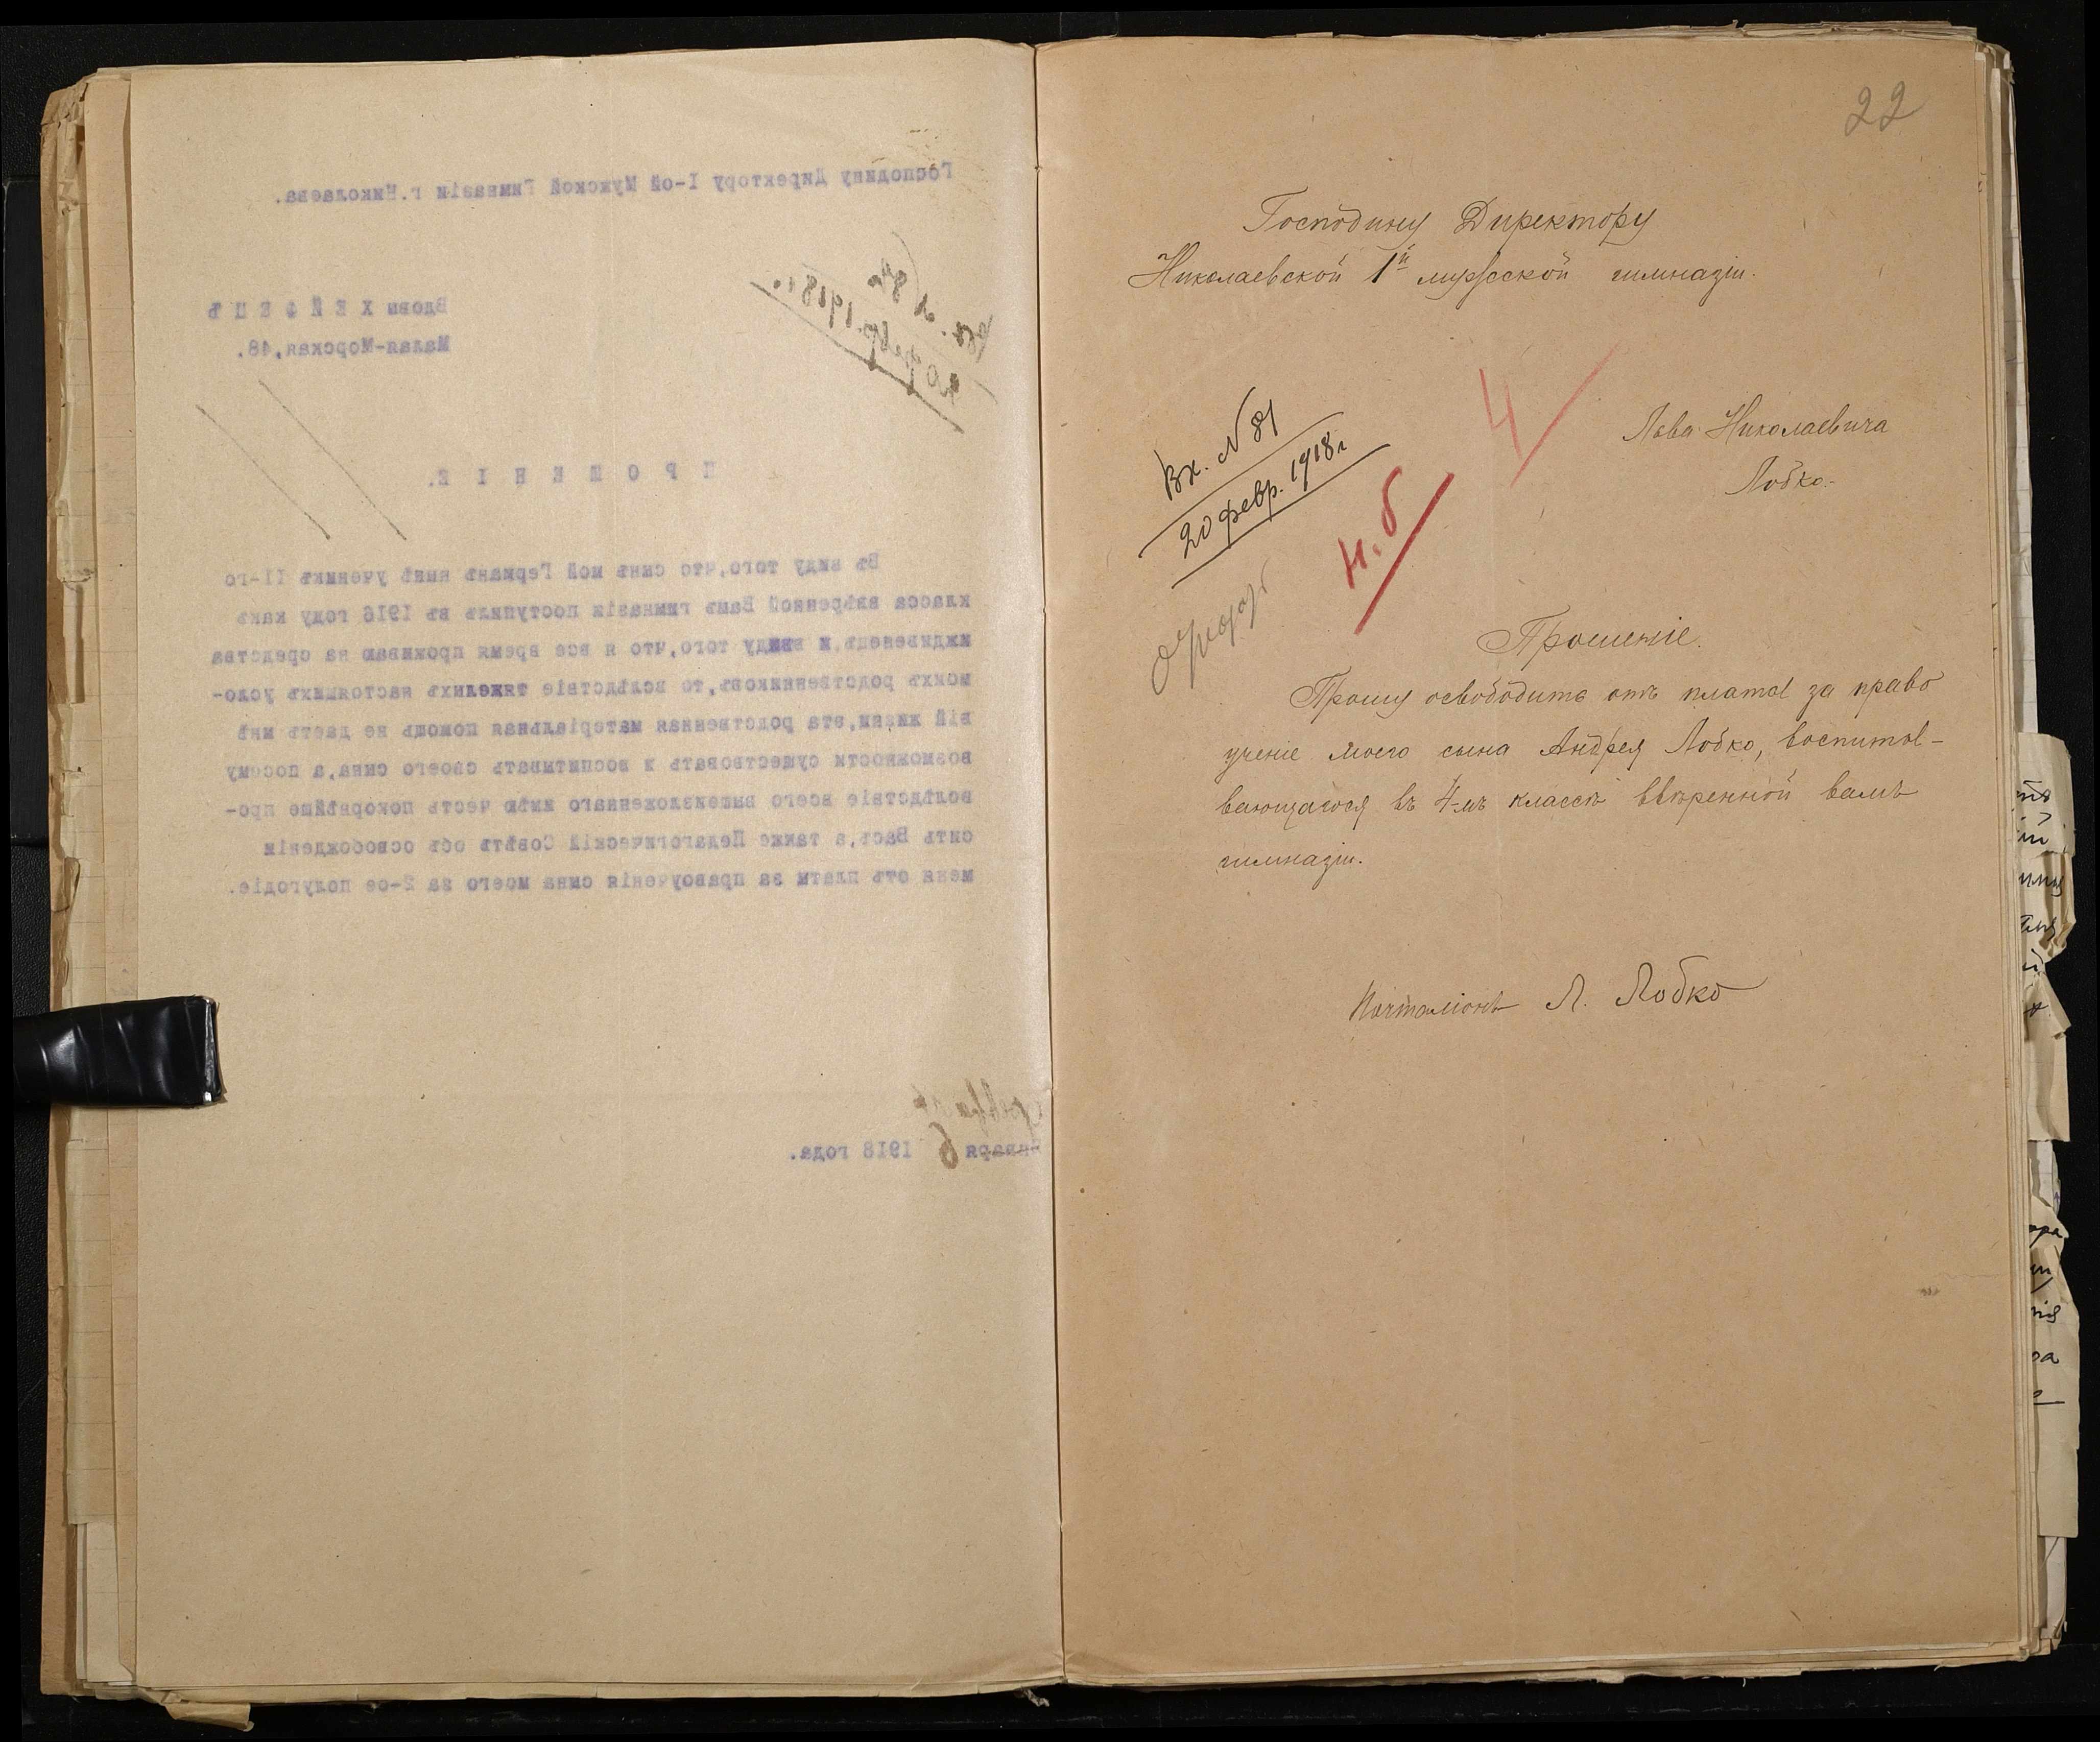 Господину Директору I-ой Мужской Гимназіи г.Николаева.
Вх. N 84
20 февр. 1918 г.
Вдовы ХЕЙФЕЦЪ
Малая-Морская,48.
ПРОШЕНІЕ.
Въ виду того,что сынъ мой Германъ нынѣ ученикъ II-го
класса ввѣренной Вамъ гимназіи поступилъ въ 1916 году какъ
иждивенецъ,и ввиду того,что я все время проживаю на средства
моихъ родственниковъ,то вслѣдствіе тяжелыхъ настоящихъ усло-
вій жизни,эта родственная матеріальная помощь не даетъ мнѣ
возможности существовать и воспитывать своего сына,а посему
вслѣдствіе всего вышеизложеннаго имѣю честь покорнѣйше про-
сить Васъ,а также Педагогическій Совѣтъ объ освобожденіи
меня отъ платы за правоученія сына моего за 2-ое полугодіе.
Января 6 1918 года.
22
Господину Директору
Николаевской 1й мужской гимназіи.
Льва Николаевича
Лобко.
Вх. N 81
20 февр. 1918 г
4
н. б
Прошеніе.
Прошу освободить отъ платы за право
ученіе моего сына Андрея Лобко, воспиты-
вающагося въ 4-мъ классѣ ввѣренной вамъ
гимназіи.
Почталіонъ Л. Лобко